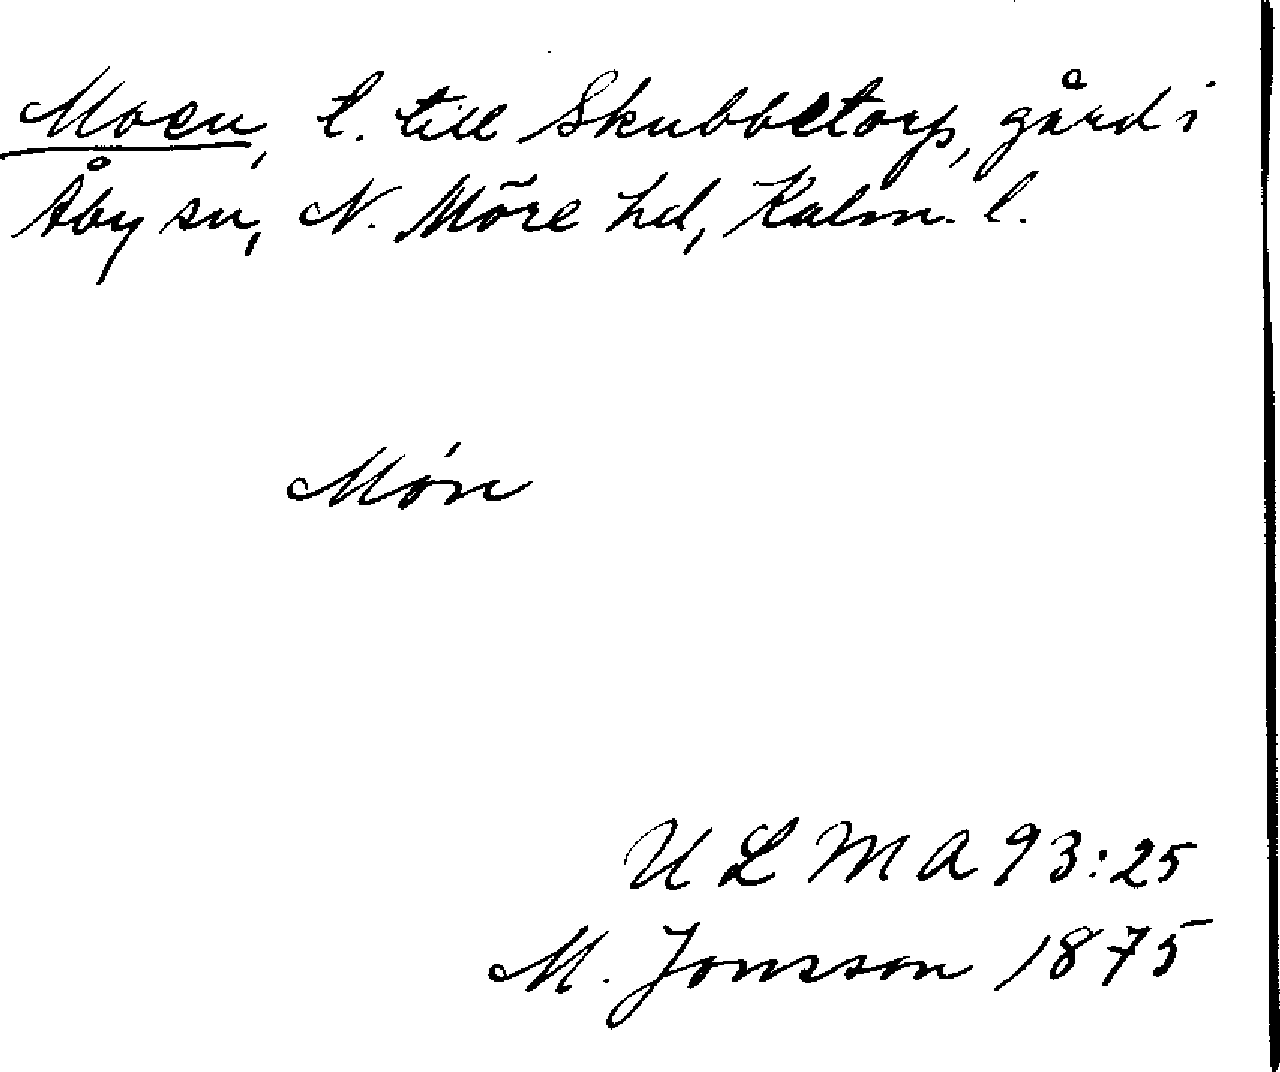 Moen, t. till Skubbetorp, gård i
Åby sn, N. Möre hd, Kalm. l.
Món
ULMA 93:25
M. Jonsson 1875